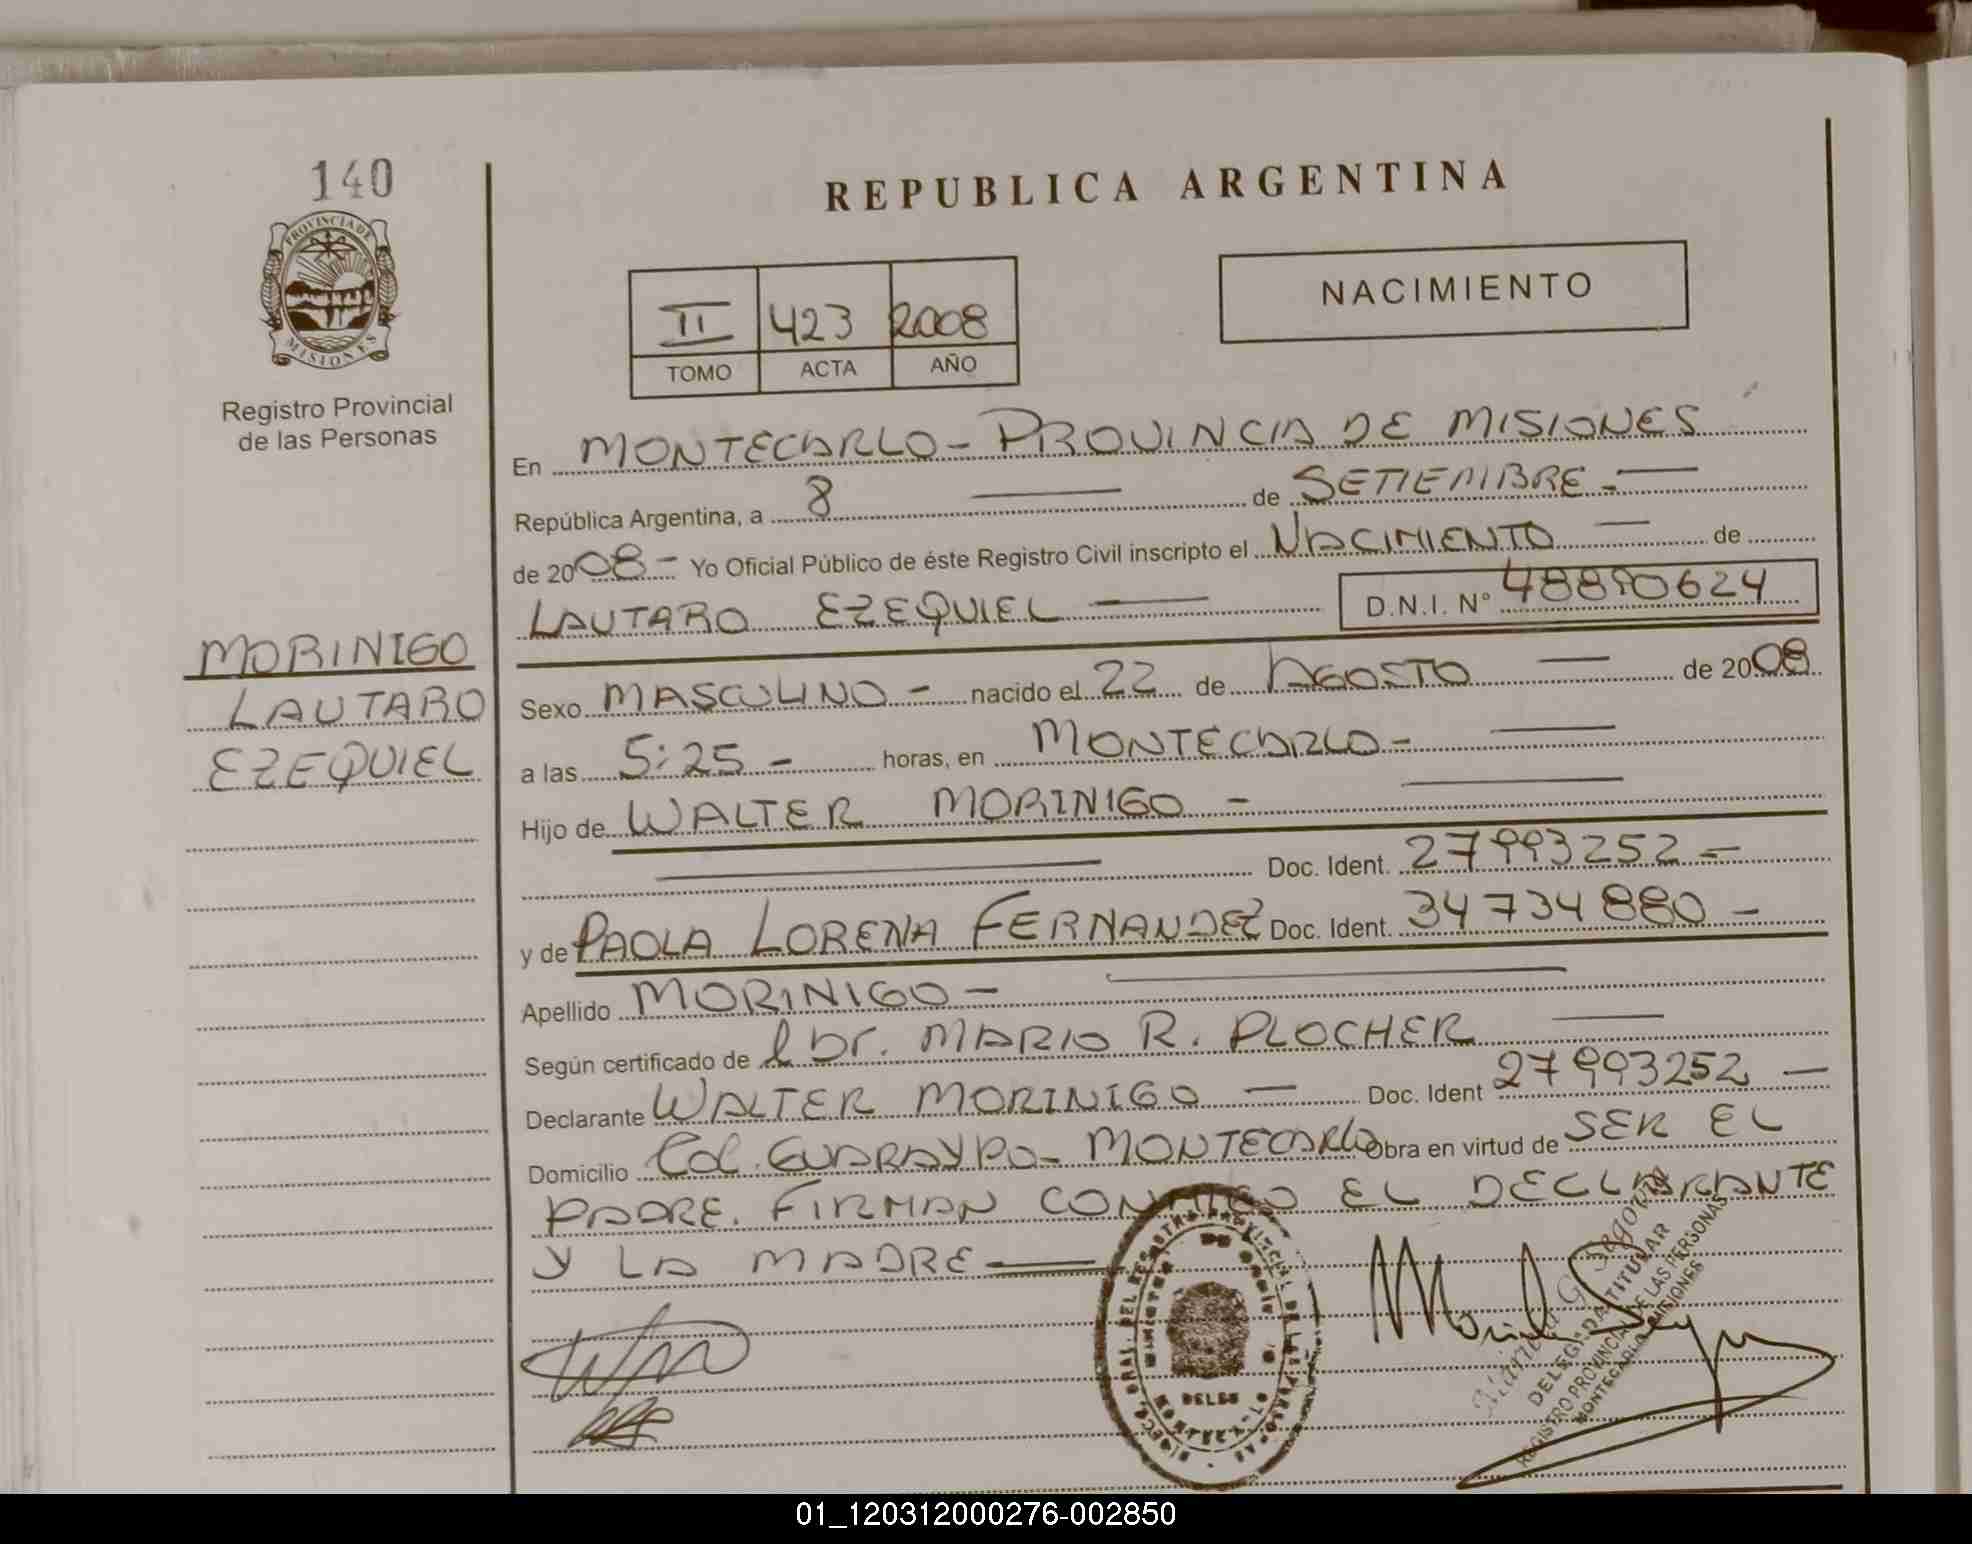 140
PROVINCIA DE
MISIONES
Registro Provincial
de las Personas
MORINIGO
LAUTARO
EZEQUIEL
REPUBLICA ARGENTINA
II 423 2008
TOMO ACTA AÑO
NACIMIENTO
En MONTECARLO - PROVINCIA DE MISIONES
República Argentina, a 8 de SETIEMBRE.-
de 2008- Yo Oficial Público de éste Registro Civil inscripto el NACIMIENTO de
LAUTARO EZEQUIEL D.N.I. N° 48890624
Sexo MASCULINO - nacido el 22 de AGOSTO de 2008
a las 5:25 - horas, en MONTECARLO -
Hijo de WALTER MORINIGO -
Doc. Ident. 27993252 -
y de PAOLA LORENA FERNANDEZ Doc. Ident. 34734880 -
Apellido MORINIGO -
Según certificado de l Dr. MARIO R. PLOCHER
Declarante WALTER MORINIGO - Doc. Ident 27993252 -
Domicilio Col. GUARAYPO - MONTECARLO Obra en virtud de SER EL
PADRE. FIRMAN CONMIGO EL DECLARANTE
Y LA MADRE
DELEGADA TITULAR
REGISTRO PROVINCIAL DE LAS PERSONAS
MONTECARLO MISIONES
01_120312000276-002850